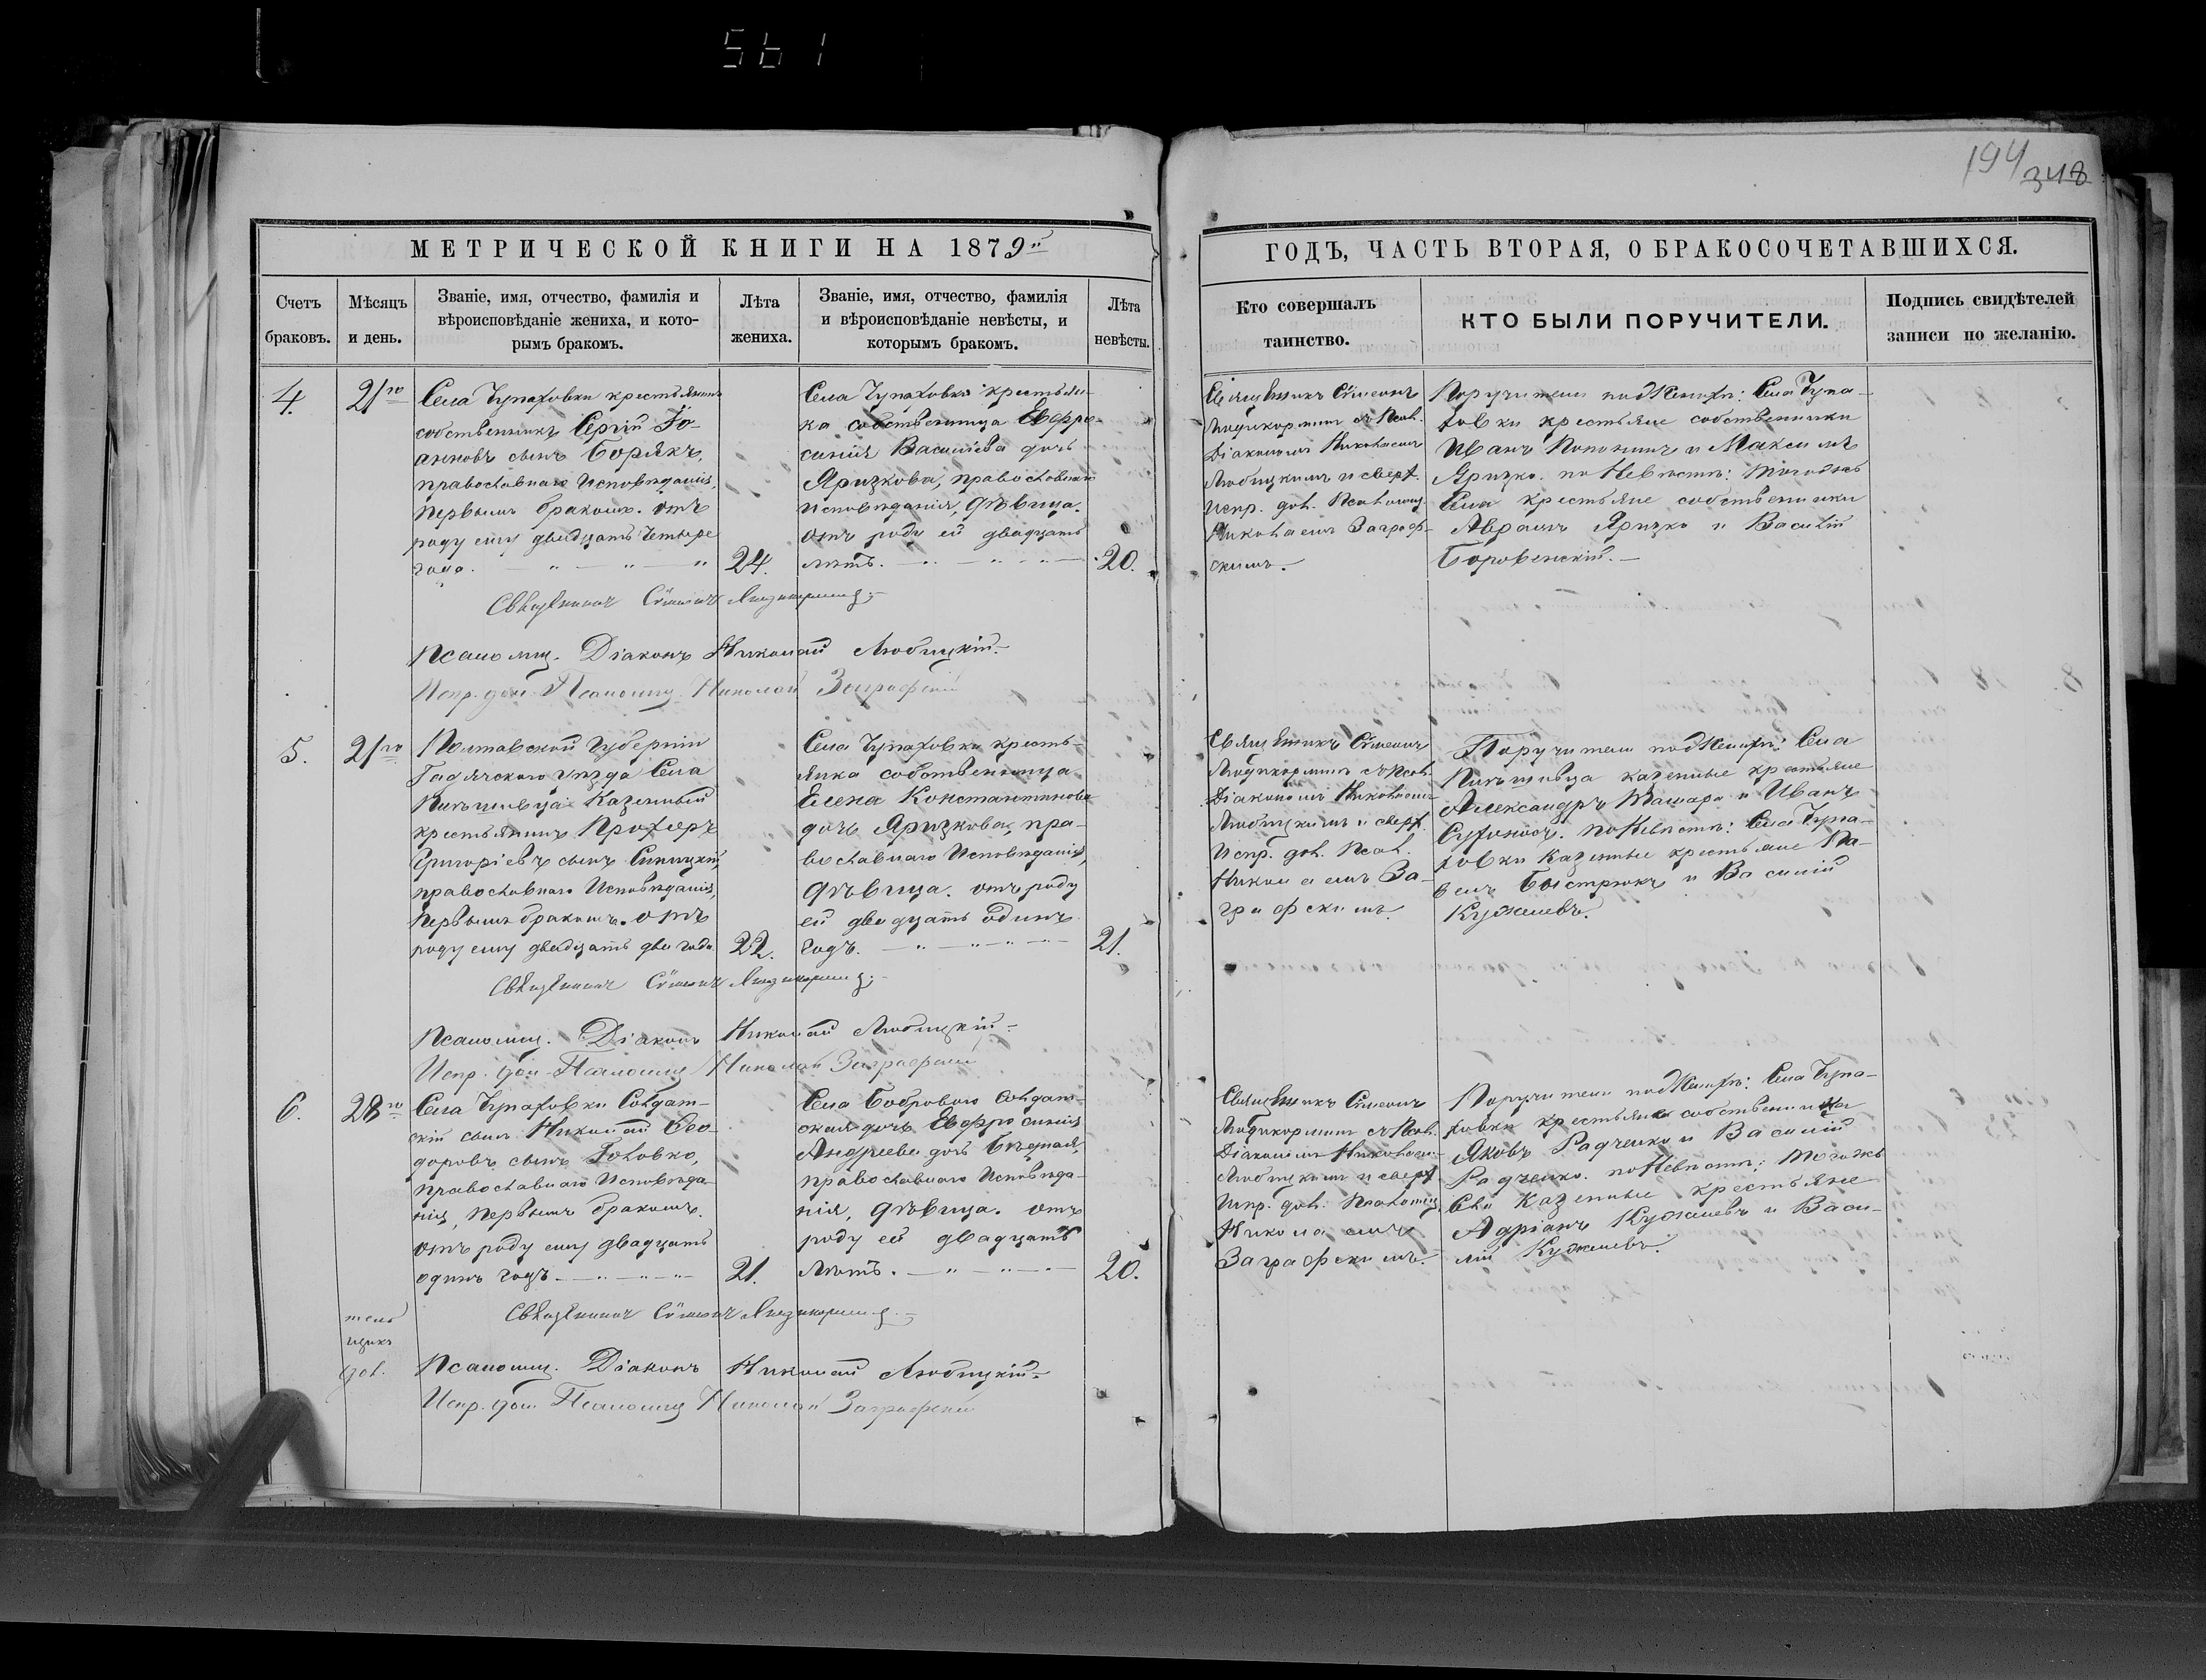 561
194
348
МЕТРИЧЕСКОЙ КНИГИ НА 1879й
ГОДЪ, ЧАСТЬ ВТОРАЯ, О БРАКОСОЧЕТАВШИХСЯ.
Счетъ браковъ.
Мѣсяцъ и день.
Званіе, имя, отчество, фамилія и
вѣроисповѣданіе жениха, и кото-
рымъ бракомъ.
Лѣта жениха.
Званіе, имя, отчество, фамилія
и вѣроисповѣданіе невѣсты, и
которымъ бракомъ.
Лѣта невѣсты.
Кто совершалъ
таинство.
КТО БЫЛИ ПОРУЧИТЕЛИ.
Подпись свидѣтелей
записи по желанію.
4.
21го
Села Чупаховки крестьянинъ
собственникъ Сергій Іо-
анновъ сынъ Борякъ,
православнаго Исповѣданія,
первымъ бракомъ. отъ
роду ему двадцать четыре
года.
24.
Села Чупаховки крестьян-
ка собственница Евфро-
синія Василіева дочь
Яризкова, православнаго
Исповѣданія, дѣвица.
отъ роду ей двадцать
лѣтъ.
20.
Священникъ Сѵмеонъ
Діакономъ Николаемъ
Любицкимъ и сверх.
Испр. дол. Псаломщ.
Николаемъ Заграф-
скимъ.
Поручители по Женихѣ: Села Чупа-
ховки крестьяне собственники
Иванъ и Максимъ
Яризко. по Невѣстѣ: тогожъ
Села крестьяне собственники
Авраамъ Яризко и Василій
Боровенскій.
Священникъ Сѵмеонъ
Псаломщ. Діаконъ Николай Любицкій
Испр. дол. Псаломщ. Николай Заграфскій
5.
21го
Полтавской Губерніи
Гадячского уѣзда Села
Казенный
крестьянинъ Прохоръ
Григоріевъ сынъ Синицкій,
православнаго Исповѣданія,
первымъ бракомъ. отъ
роду ему двадцать два года
22.
Села Чупаховки кресть-
янка собственница
Елена Константинова
дочь Яризкова, пра-
вославнаго Исповѣданія,
дѣвица. отъ роду
ей двадцать одинъ
годъ.
21.
Священникъ Сѵмеонъ
Діакономъ Николаемъ
Любицкимъ и сверх.
Испр. дол. Псал.
Николаемъ За-
графскимъ.
Поручители по Женихѣ: Села
казенные крестьяне
Александръ и Иванъ
Сухоносъ. по Невѣстѣ: Села Чупа-
ховки Казенные крестьяне Па-
велъ Быстрюкъ и Василій
Кужелевъ.
Священникъ Сѵмеонъ
Псаломщ. Діаконъ Николай Любицкій
Испр. дол. Псаломщ. Николай Заграфскій
6.
28го
Села Чупаховки Солдат-
скій сынъ Николай Ѳео-
доровъ сынъ Головко,
православнаго Исповѣда-
нія, первымъ бракомъ.
отъ роду ему двадцать
одинъ годъ
21.
Села Боброваго Солдат-
ская дочь Евфросинія
Андреева дочь Бѣдная,
православнаго Исповѣда-
нія, дѣвица. отъ
роду ей двадцать
лѣтъ.
20.
Священникъ Сѵмеонъ
Діакономъ Николаемъ
Любицкимъ и сверх
Испр. дол. Псаломщ.
Николаемъ
Заграфскимъ.
Поручители по Женихѣ: Села Чупа-
ховки крестьяне собственники
Яковъ Радченко и Василій
Радченко. по Невѣстѣ: тогожъ
Села Казенные крестьяне
Адріанъ Кужелевъ и Васи-
лій Кужелевъ.
Священникъ Сѵмеонъ
дол.
Псаломщ. Діаконъ Николай Любицкій
Испр. дол. Псаломщ. Николай Заграфскій